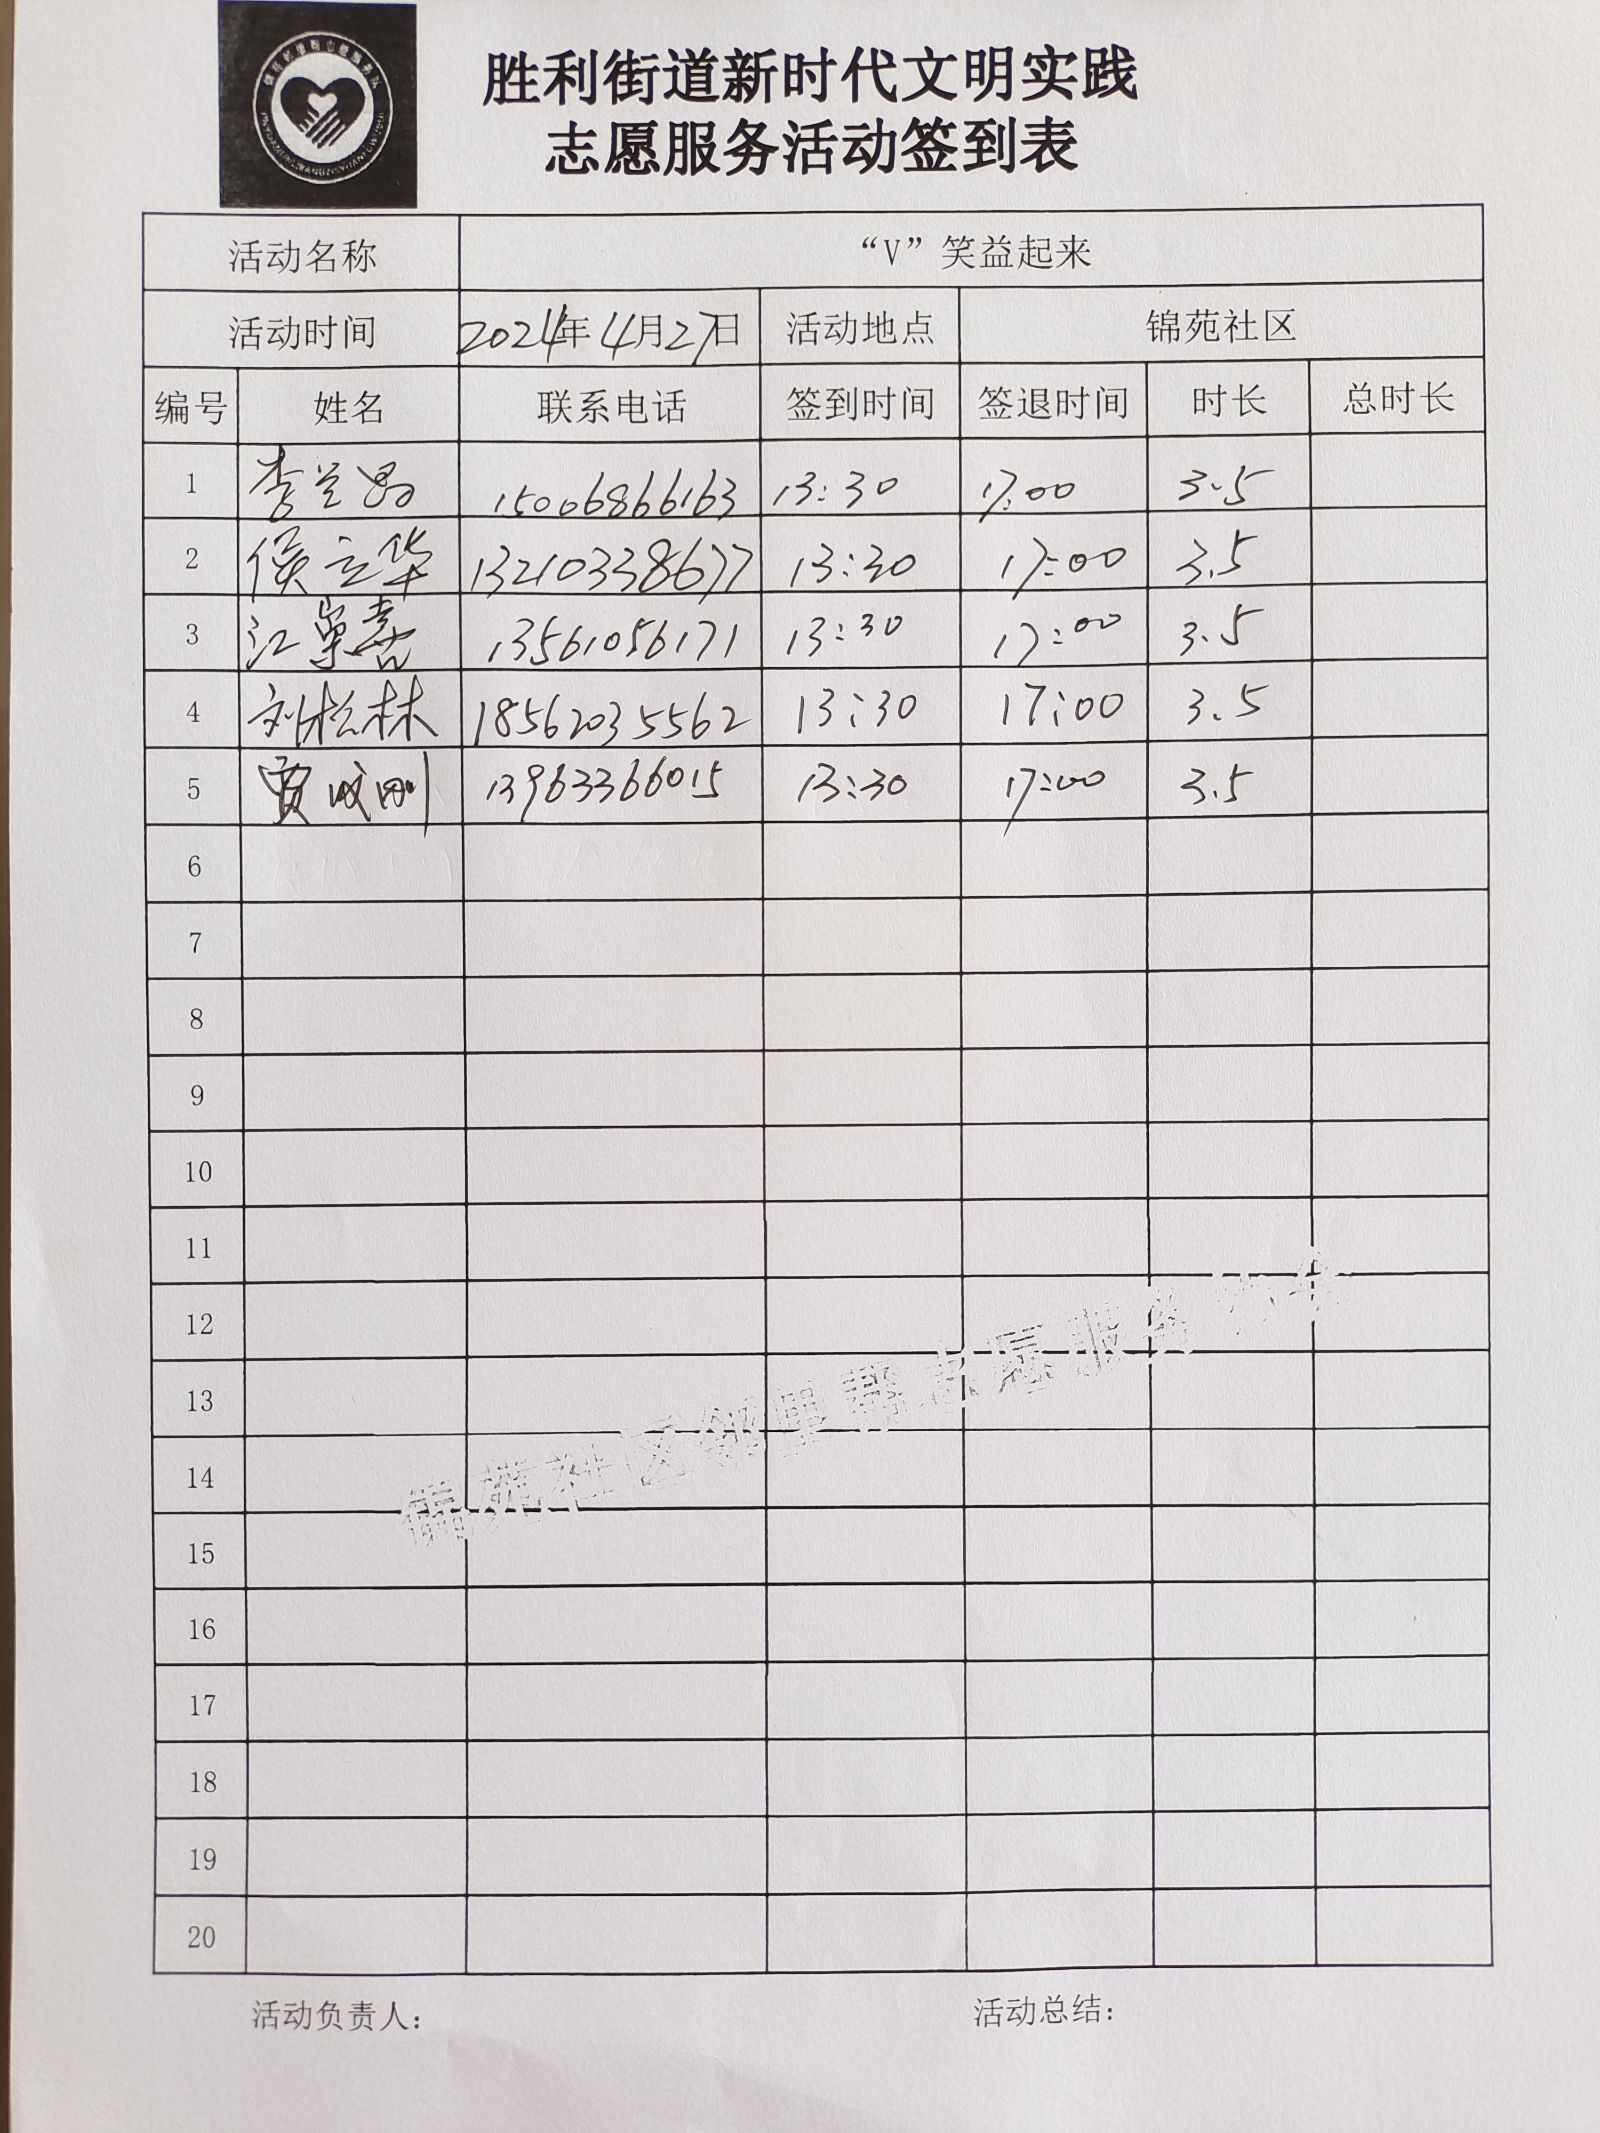 胜利街道新时代文明实践
志愿服务活动签到表
活动名称 “V”笑益起来
活动时间 2024年4月27日 活动地点 锦苑社区
编号 姓名 联系电话 签到时间 签退时间 时长 总时长
1 李兰昌 15006866163 13:30 17:00 3.5
2 侯立华 13210338677 13:30 17:00 3.5
3 江 13561056171 13:30 17:00 3.5
4 刘松林 18562035562 13:30 17:00 3.5
5 贾成刚 13963366015 13:30 17:00 3.5
6
7
8
9
10
11
12
13
14
15
16
17
18
19
20
锦苑社区邻里帮志愿服务队
活动负责人: 活动总结: